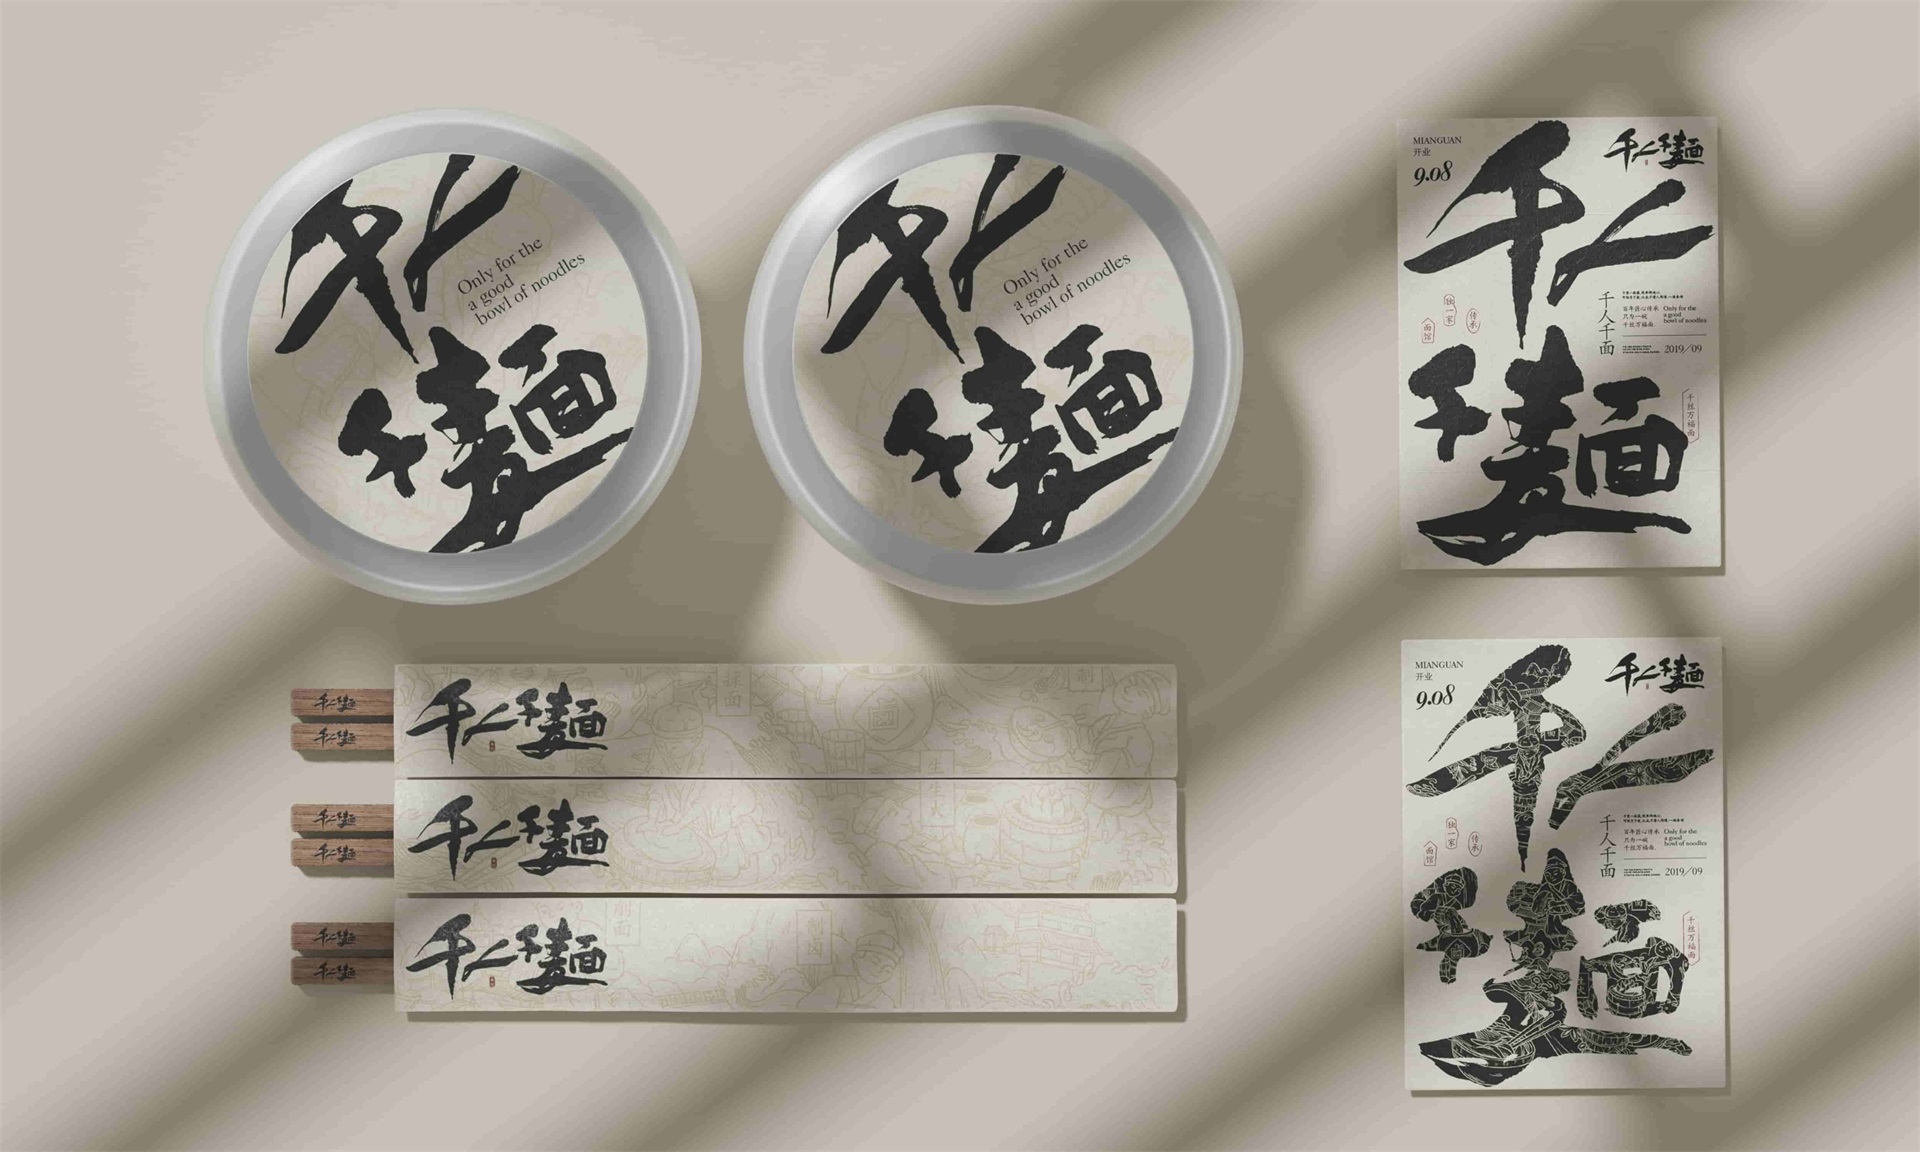 千人千麵
Only for the
a good
bowl of noodles
千人千麵
Only for the
a good
bowl of noodles
MIANGUAN
开业
9.08
千人千麵
千人千麵
独一家
传承
面馆
千人千面
百年匠心传承
只为一碗
千丝万福面
Only for the
a good
bowl of noodles
2019/09
千丝万福面
千人千麵
千人千麵
千人千麵
揉面
制
生
千人千麵
千人千麵
千人千麵
生火
千人千麵
千人千麵
千人千麵
削面
制面
MIANGUAN
开业
9.08
千人千麵
千人千麵
独一家
传承
面馆
千人千面
百年匠心传承
只为一碗
千丝万福面
Only for the
a good
bowl of noodles
2019/09
千丝万福面